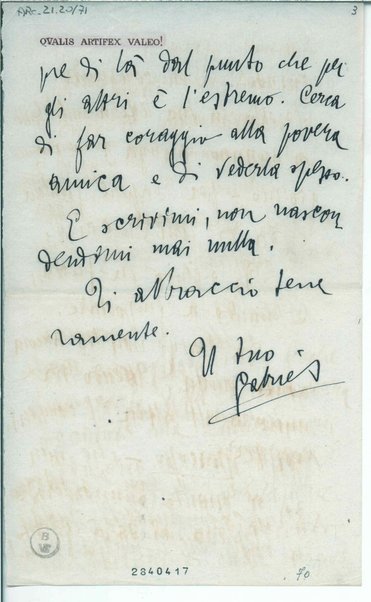 ARC. 21.20/71
3
QVALIS ARTIFEX VALEO!
pre di là dal punto che per
gli altri è l'estremo. Cerca
di far coraggio alla povera
amica e di vederla spesso.
E scrivimi, non nascon
dendomi mai nulla.
Ti abbraccio tene
ramente.
Il tuo
Gabriel
B
VE
2840417
70